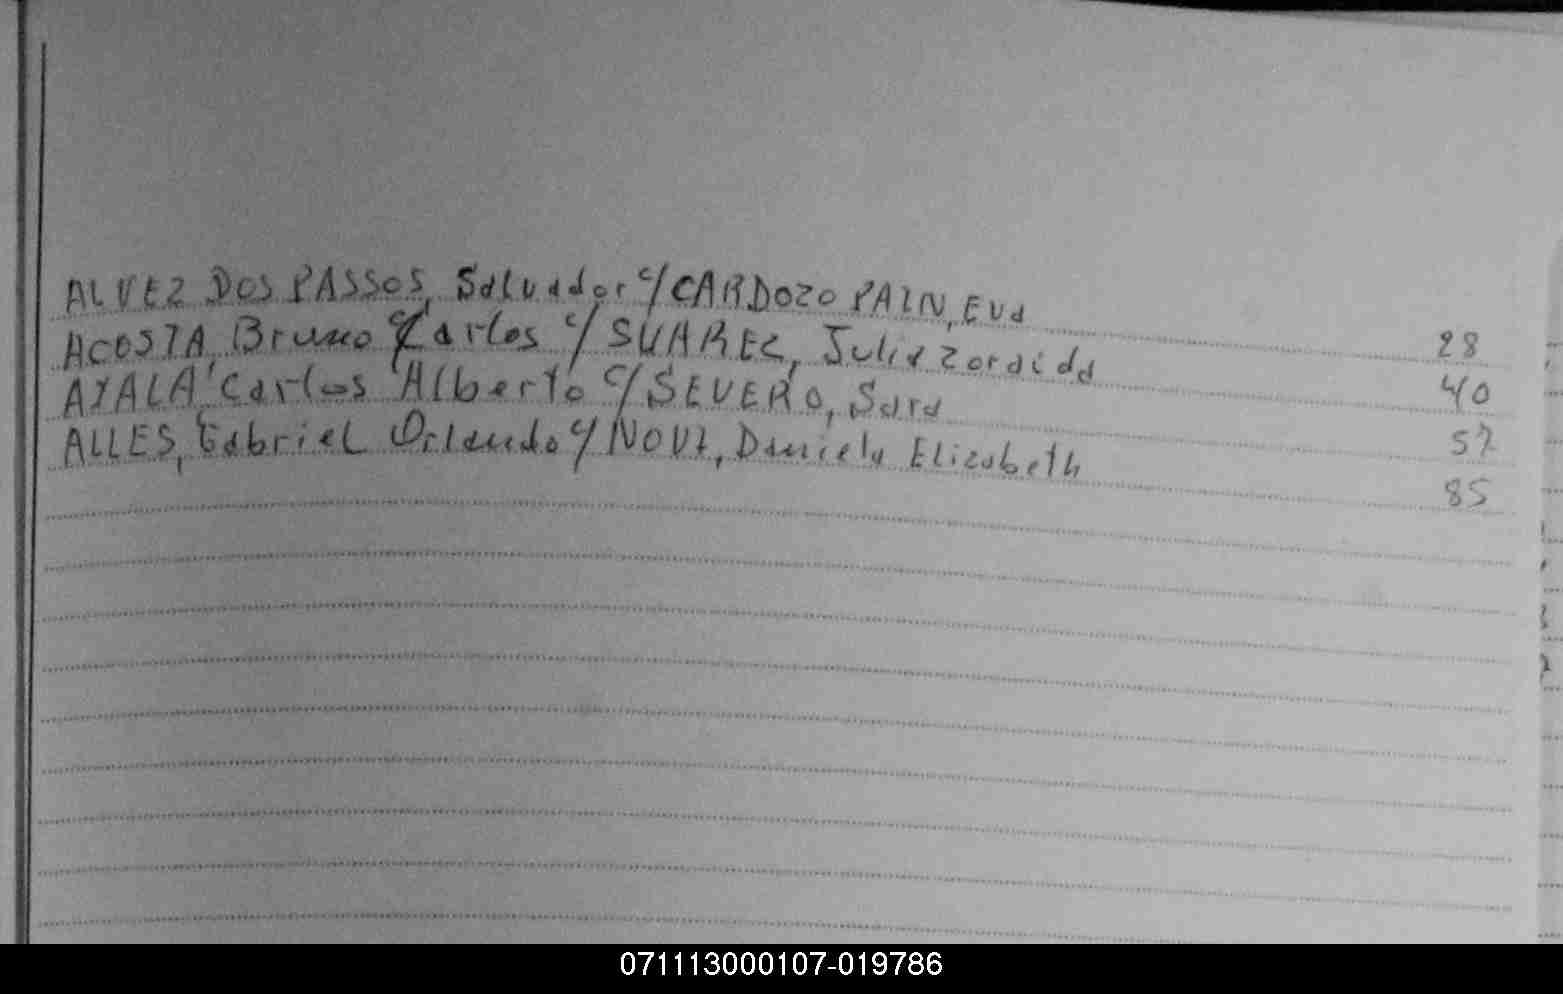 ALVEZ DOS PASSOS, Salvador c/ CARDOZO PAIN, Eva 28
ACOSTA, Bruno Carlos c/ SUAREZ, Julia Zoraida 40
AYALA, Carlos Alberto c/ SEVERO, Sara 57
ALLES, Gabriel Orlando c/ NOVI, Daniela Elizabeth 85
071113000107-019786